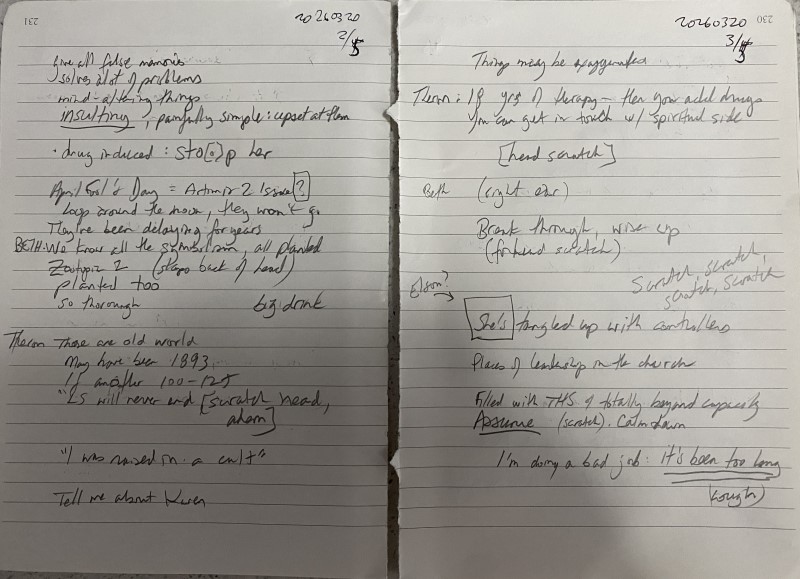 231
20260320
2/5
give all false memories
solves a lot of problems
mind-altering things
insulting, painfully simple: upset at them
• drug induced: sto[o]p her
April Fool's Day = Artimis 2 Issue [?]
Loop around the moon, they won't go
They've been delaying for years
BETH: We know all the symbolism, all planted
Zootopia 2 (slaps back of head)
planted too
so thorough big drink
Theron Those are old world
May have been 1893
If another 100-125
"LS will never end [scratch head, ahem]
"I was raised in a cult"
Tell me about
230
20260320
3/5
Things may be exaggerated
Theron: If yrs of therapy – then you add drugs
You can get in touch w/ spiritual side
[head scratch]
Beth (right ear)
Break through, wise up
(forehead scratch)
Scratch, scratch,
scratch, scratch
She's tangled up with controllers
Places of leadership in the church
Filled with THS & totally beyond capacity
Assume (scratch). Calm down
I'm doing a bad job: it's been too long
(cough)